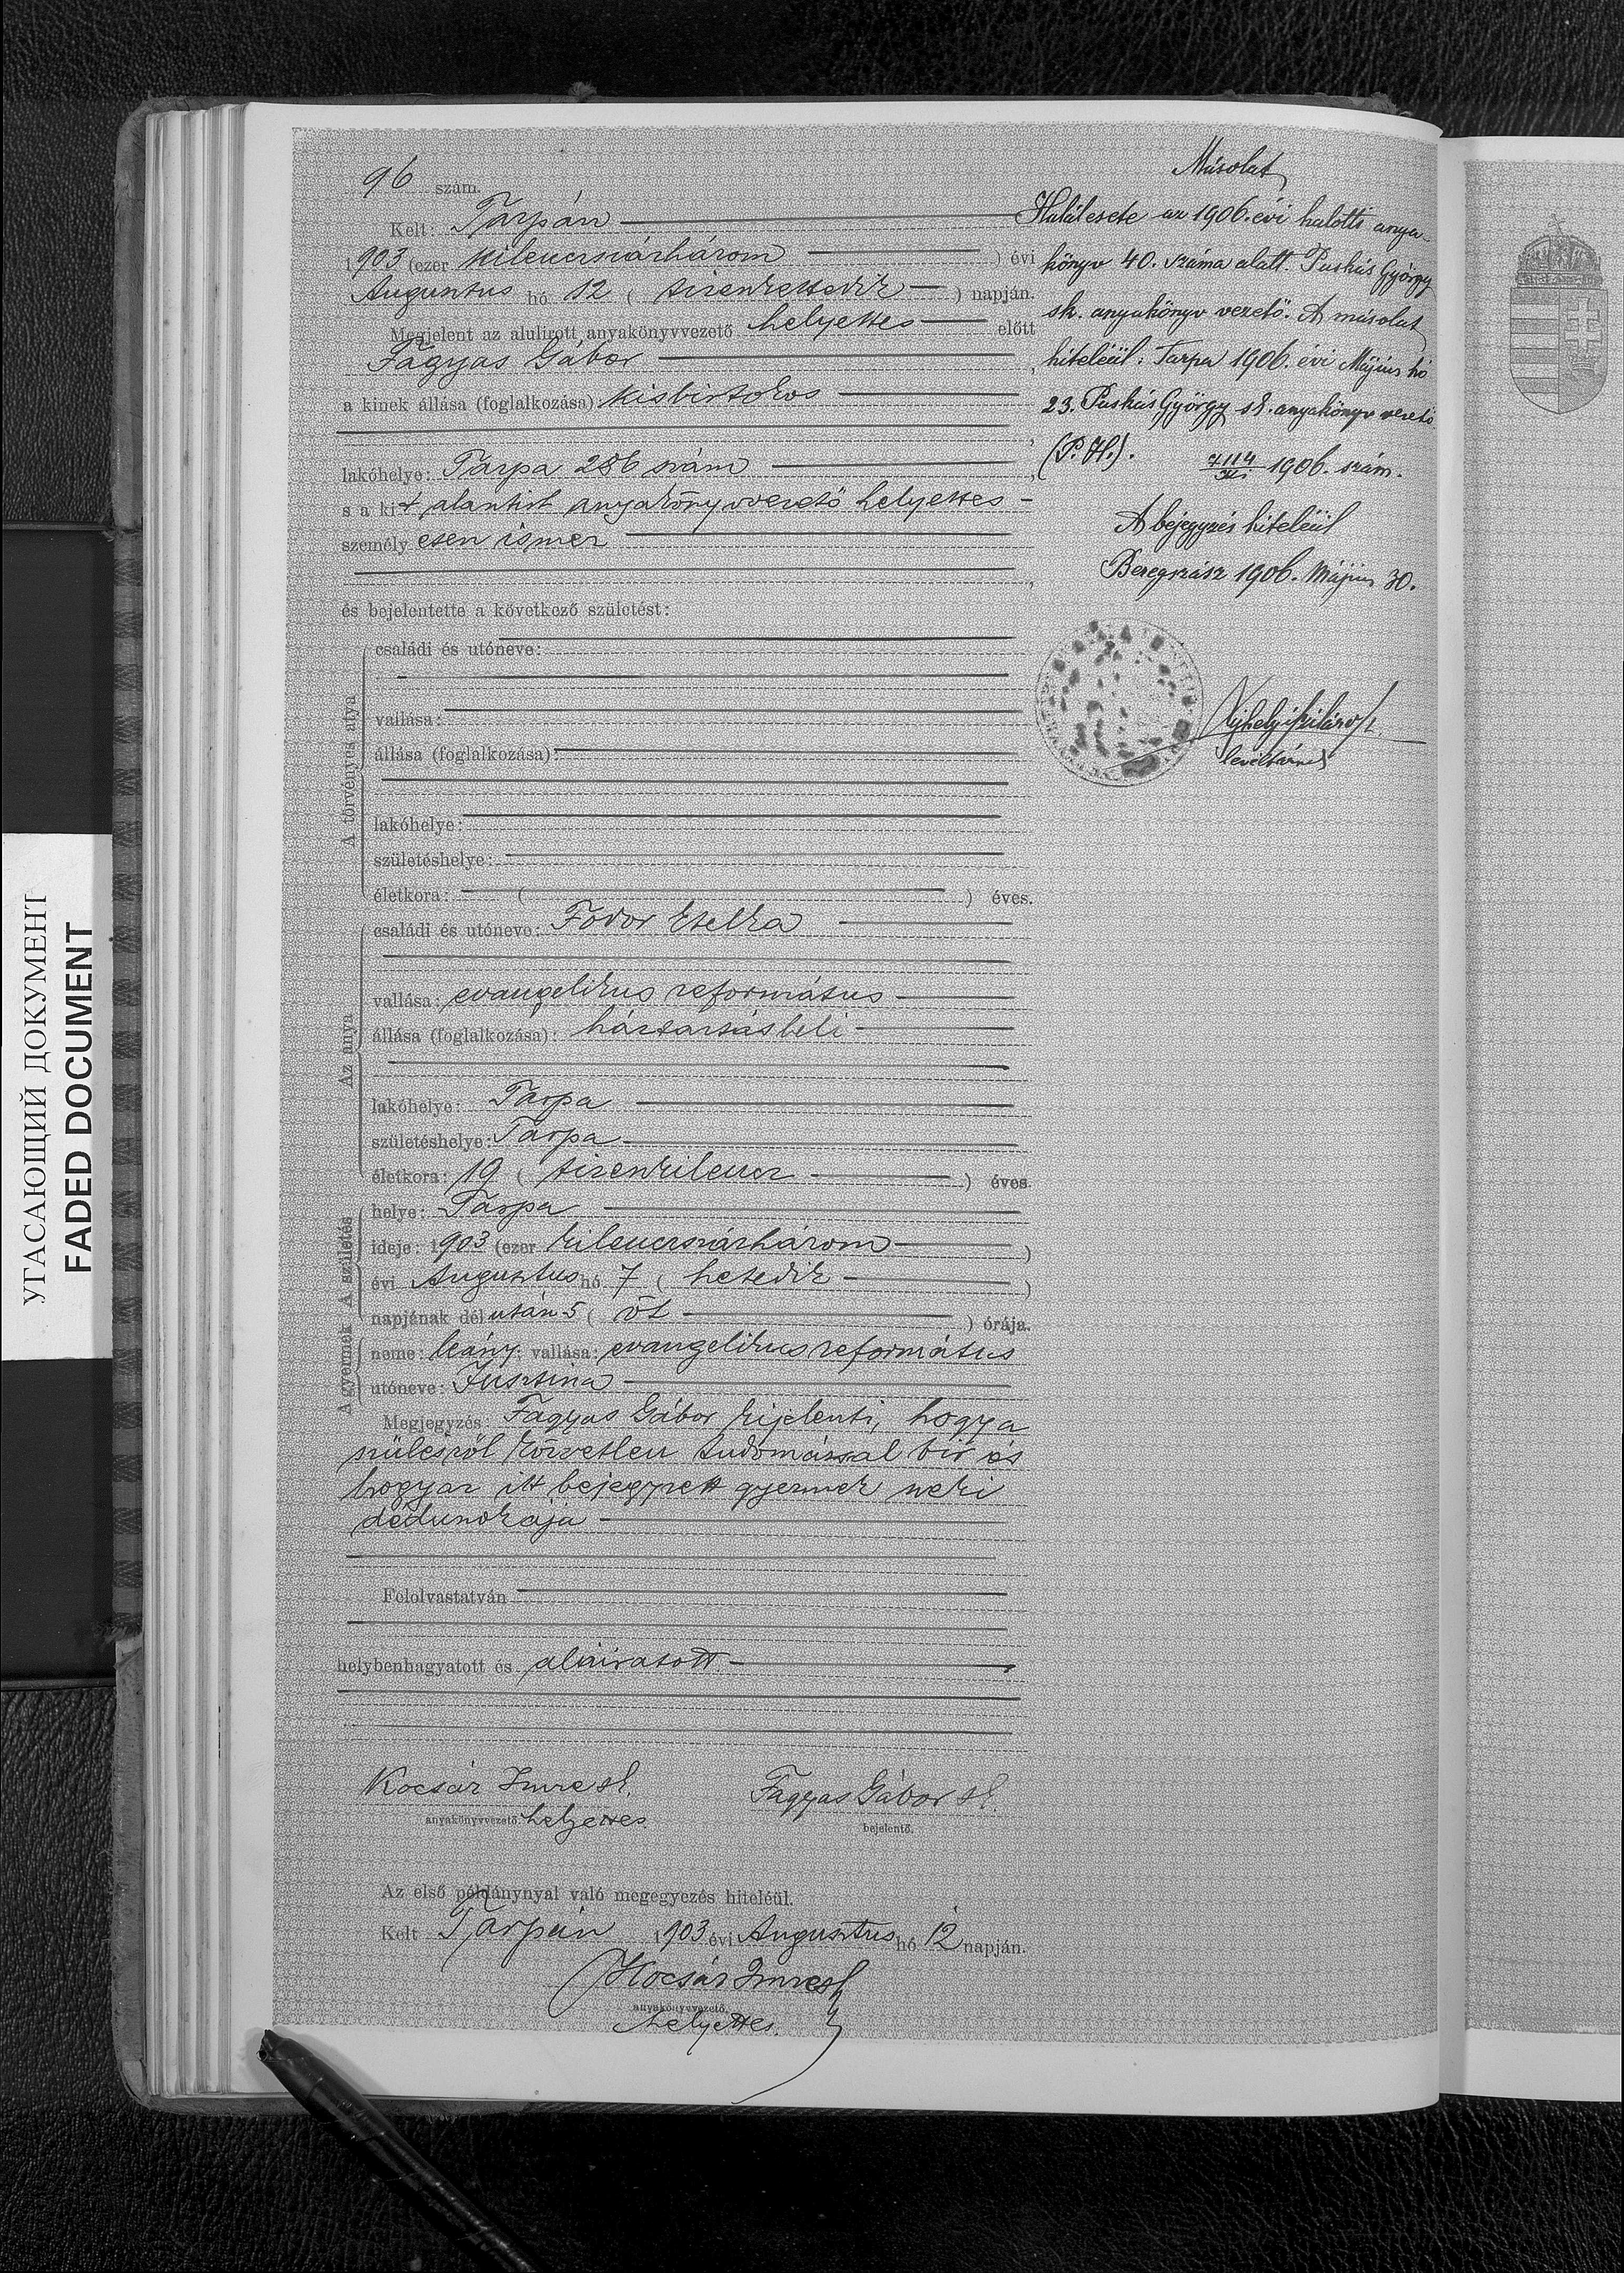 96 szám.
Kelt: Tarpán
1903 (ezer kilenczszázhárom) évi
Augusztus hó 12 (tizenkettedik) napján.
Megjelent az alulirott anyakönyvvezető helyettes előtt
Fagyas Gábor,
a kinek állása (foglalkozása): kisbirtokos
,
lakóhelye: Tarpa 286 szám,
s a kit alantirt anyakönyvvezető helyettes
személyesen ismer
,
és bejelentette a következő születést:
A törvényes atya
családi és utóneve:
vallása:
állása (foglalkozása):
lakóhelye:
születéshelye:
életkora: ( ) éves.
Az anya
családi és utóneve: Fodor Etelka
vallása: evangelikus református
állása (foglalkozása): háztartásbeli
lakóhelye: Tarpa
születéshelye: Tarpa
életkora: 19 (tizenkilencz) éves
A gyermek
A születés
helye: Tarpa
ideje: 1903 (ezer kilenczszázhárom)
évi Augusztus hó 7 (hetedik)
napjának dél után 5 (öt) órája.
neme: leány; vallása: evangelikus református
utóneve: Jusztina
Megjegyzés: Fagyas Gábor kijelenti, hogy a
szülésről közvetlen tudomással bir és
hogy az itt bejegyzett gyermek neki
dédunokája
Felolvastatván
helybenhagyatott és aláiratott.
Kocsár Imre sk. Fagyas Gábor sk.
anyakönyvvezető helyettes. bejelentő.
Az első példánynyal való megegyezés hiteléül.
Kelt Tarpán 1903 évi Augusztus hó 12 napján.
Kocsár Imre sk
anyakönyvvezető.
helyettes.
Másolat
Halálesete az 1906. évi halotti anya-
könyv 40. száma alatt. Puskás György
sk. anyakönyv vezető. A másolat
hiteléül: Tarpa 1906. évi Május hó
23. Puskás György sk. anyakönyv vezető
(P. H.).
1906. szám.
A bejegyzés hiteléül
Beregszász 1906. Május 30.
levéltárnok
УГАСАЮЩИЙ ДОКУМЕНТ
FADED DOCUMENT